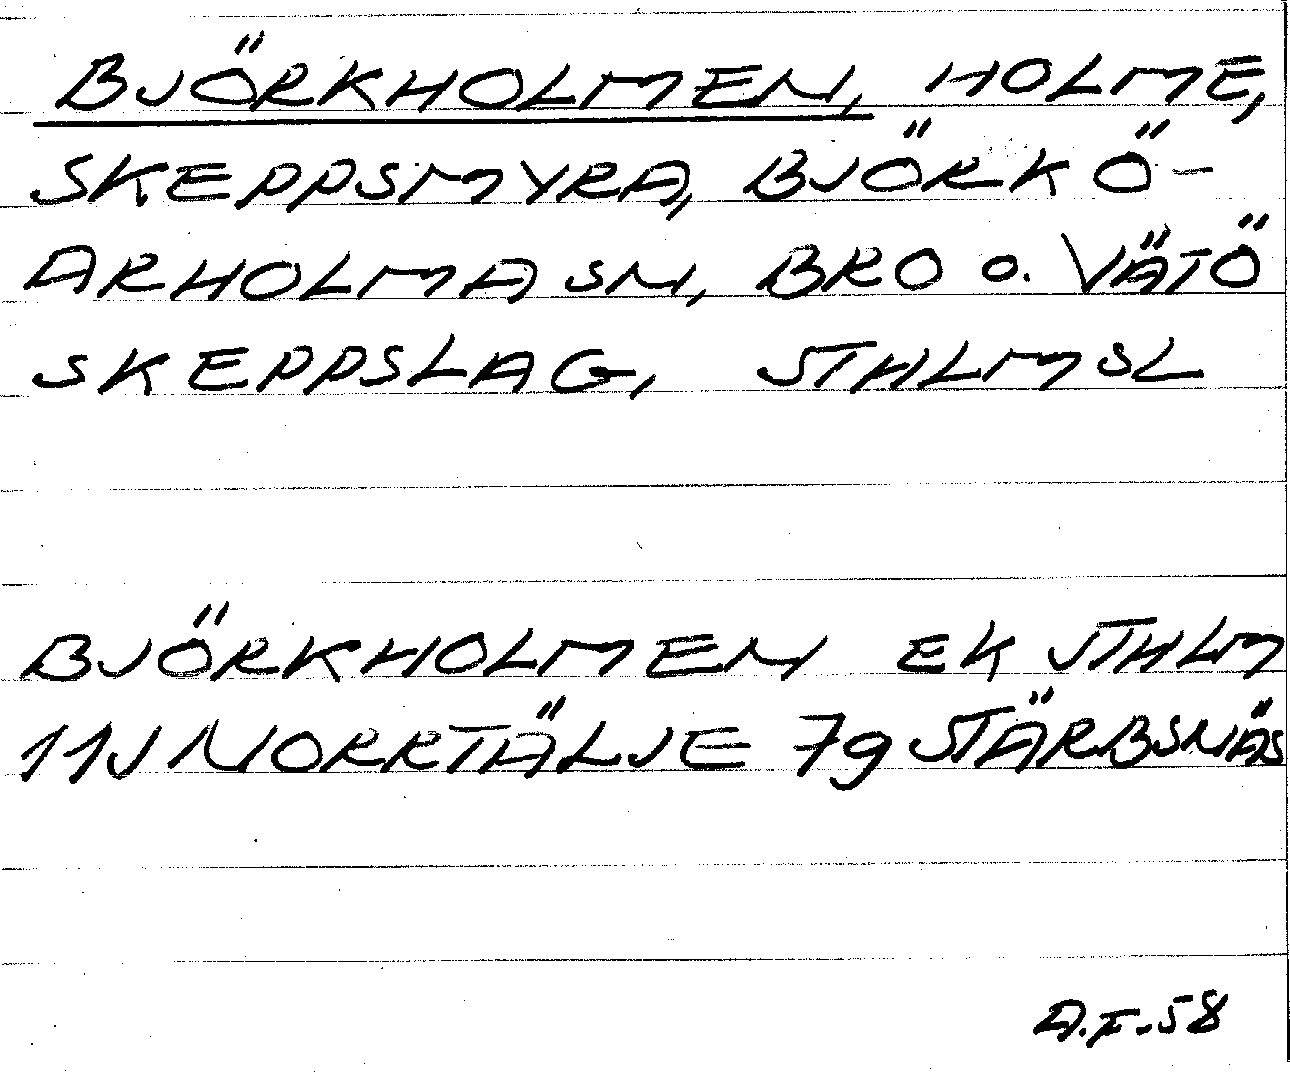 BJÖRKHOLMEN, HOLME,
SKEPPSMYRA, BJÖRKÖ-
ARHOLMA SN, BRO o. VÄTÖ
SKEPPSLAG, STHLMSL
BJÖRKHOLMEN EK STHLM
11J NORRTÄLJE 7g STÄRBSNÄS
A.F.-58